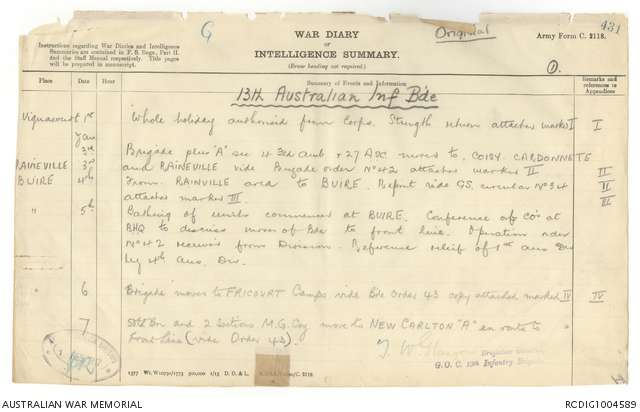 G
WAR DIARY
Original
Army Form C. 2118.
431
Instructions regarding War Diaries and Intelligence
Summaries are contained in F. S. Regs., Part II.
and the Staff Manual respectively. Title pages
will be prepared in manuscript.
or
INTELLIGENCE SUMMARY.
(Erase heading not required.)
Place
Date
Hour
Summary of Events and Information
Remarks and
references to
Appendices
13th Australian Inf Bde
Vignacourt 1st Whole holiday authorised from Corps. Strength return attached marked I I
Jan
3rd Brigade plus "A" sec 4 3rd Amb + 27 ASC moved to COISY. CARDONNETTE
RAINEVILLE 3rd and RAINEVILLE vide Brigade order No 42 attached marked II II
BUIRE 4th From RAINVILLE area to BUIRE. Report vide GS. circular No 34
attached marked III III
" 5th Bathing of units commenced at BUIRE. Conference of CO's at
BHQ to discuss move of Bde to front line. Operation order
No 42 received from Division. Reference relief of 1st Aus Div
by 4th Aus. Div.
" 6 Brigade moves to FRICOURT Camps vide Bde Order 43 copy attached marked IV IV
7 Bn and 2 Sections M.G. Coy move to NEW CARLTON "A" en route to "
Front line (vide Order 43).
Brigadier General
G.O.C. 13th Infantry Brigade
1577 Wt. W10791/1773 500,000 1/15 D. D. & L.
AUSTRALIAN WAR MEMORIAL
RCDIG1004589